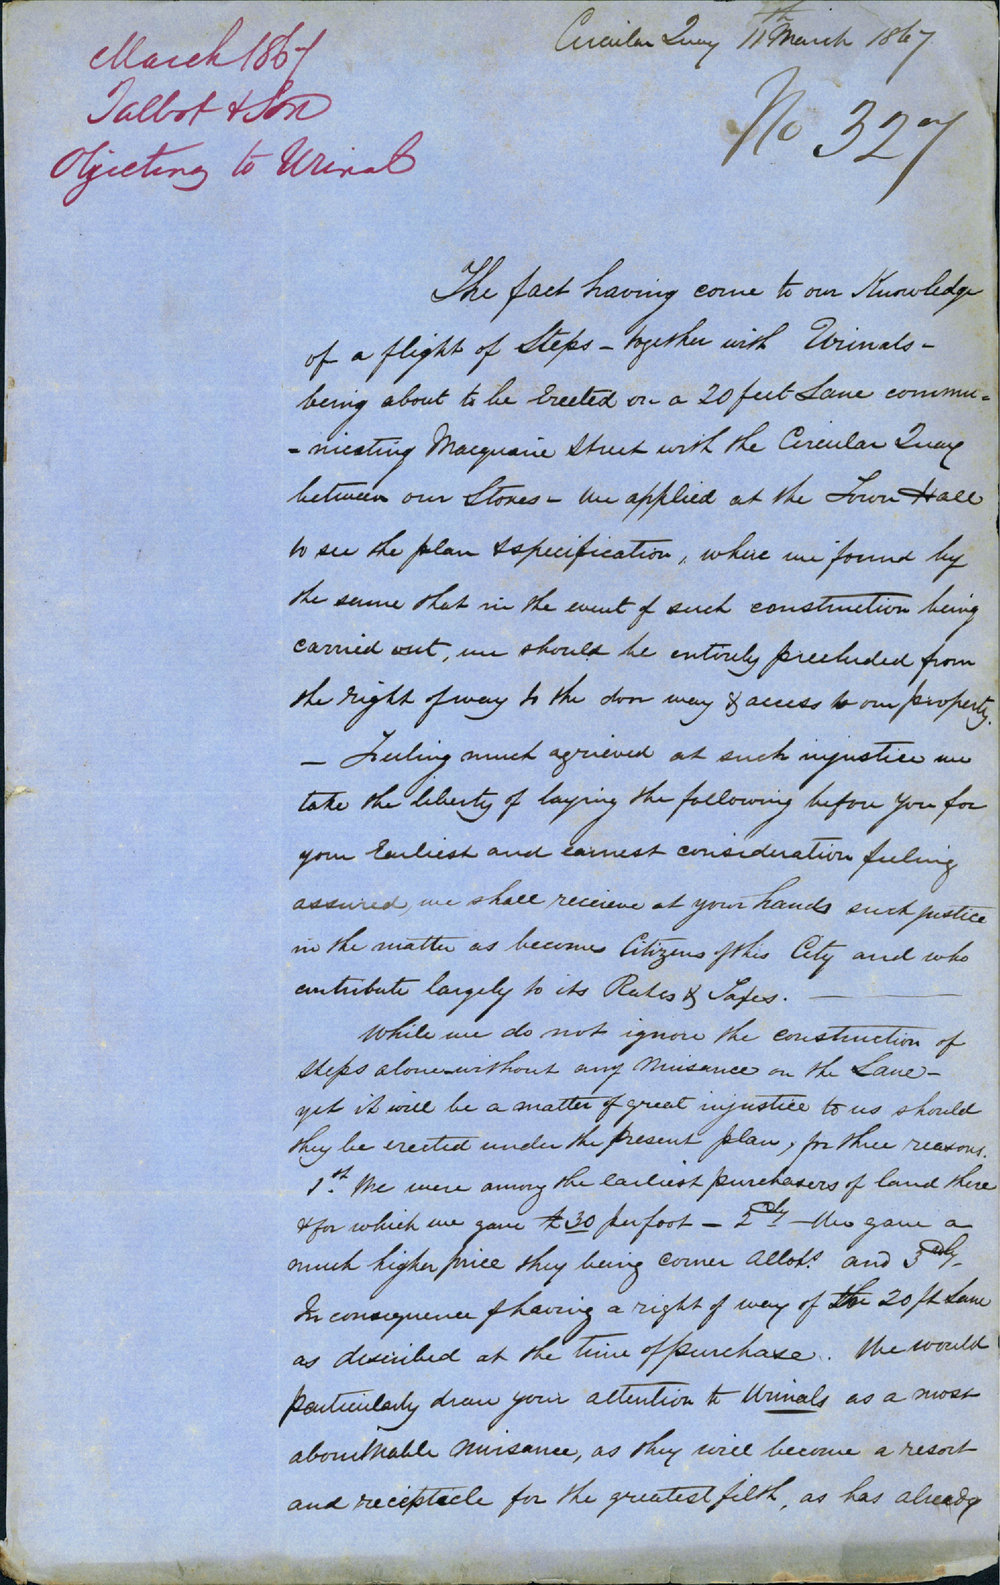 March 1867
Talbot & Son
Objecting to Urinal
Circular Quay 11th March 1867
No 327
The fact having come to our Knowledge
of a flight of Steps - together with Urinals -
being about to be Erected on a 20 feet Lane commu=
-nicating Macquarie Street with the Circular Quay
between our Stores - We applied at the Town Hall
to see the plan & specification, where we found by
the same that in the event of such construction being
carried out, we should be entirely precluded from
the right of way to the door way & access to our property.
- Feeling much agrieved at such injustice we
take the liberty of laying the following before you for
your Earliest and earnest consideration feeling
assured, we shall recieve at your hands such justice
in the matter as becomes Citizens of this City and who
contribute largely to its Rates & Taxes.
While we do not ignore the construction of
steps alone without any Nuisance on the Lane -
yet it will be a matter of great injustice to us should
they be erected under the present plan, for three reasons.
1st. We were among the earliest purchasers of land there
& for which we gave £30 per foot - 2dly - We gave a
much higher price they being corner Allots. and 3dly -
In consequence of having a right of way of the 20 ft Lane
as described at the time of purchase. We would
particularly draw your attention to Urinals as a most
abominable Nuisance, as they will become a resort
and receptacle for the greatest filth, as has already